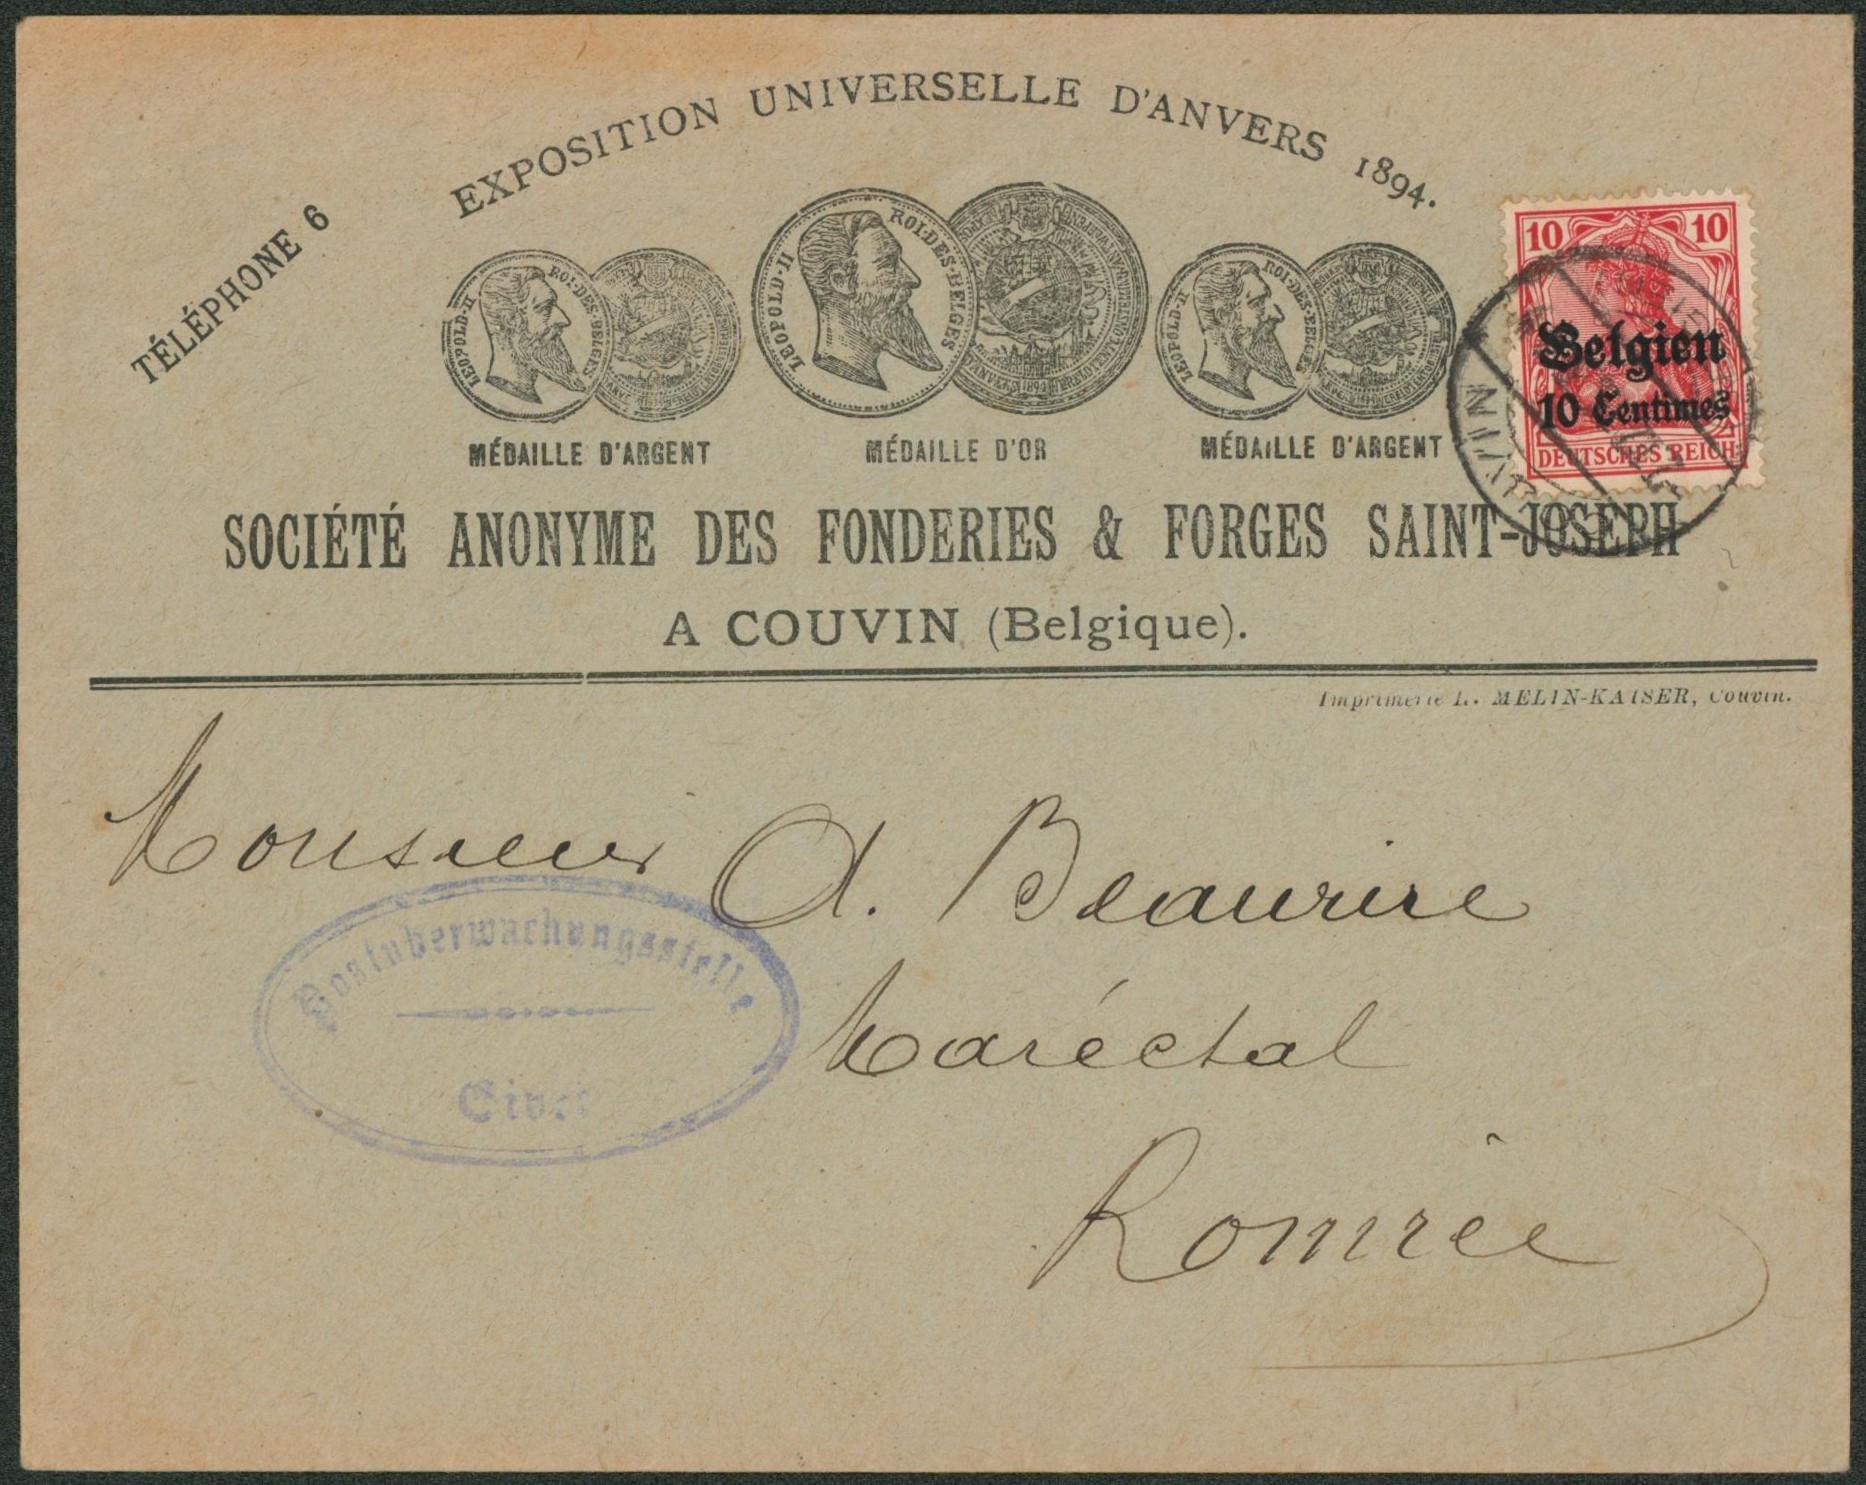 EXPOSITION UNIVERSELLE D'ANVERS 1894.
TÉLÉPHONE 6
LEOPOLD·II ROI·DES·BELGES
LEOPOLD·II ROI·DES·BELGES
LEOPOLD·II ROI·DES·BELGES
MÉDAILLE D'ARGENT MÉDAILLE D'OR MÉDAILLE D'ARGENT
10 10
Belgien
10 Centimes
DEUTSCHES REICH
SOCIÉTÉ ANONYME DES FONDERIES & FORGES SAINT-JOSEPH
A COUVIN (Belgique).
Imprimerie L. MELIN-KAISER, Couvin.
Monsieur A. Beaurire
Postüberwachungsstelle
Maréchal
Givet
Romrée